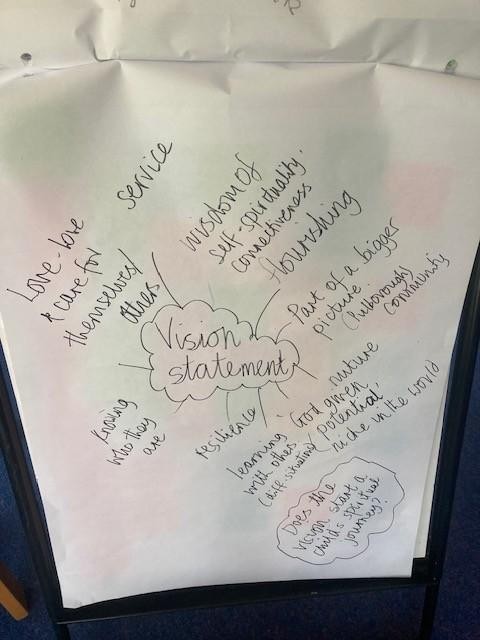 Vision
statement
Love-love
& care for
themselves/
others
service
wisdom of
self-spirituality.
connectiveness
flourishing
Part of a bigger
picture.
community
Good given nurture
potential,
niche in the world
learning
with others.
(diff. situations)
resilience
Knowing
who they
are
Does the
vision start a
child's spiritual
journey?